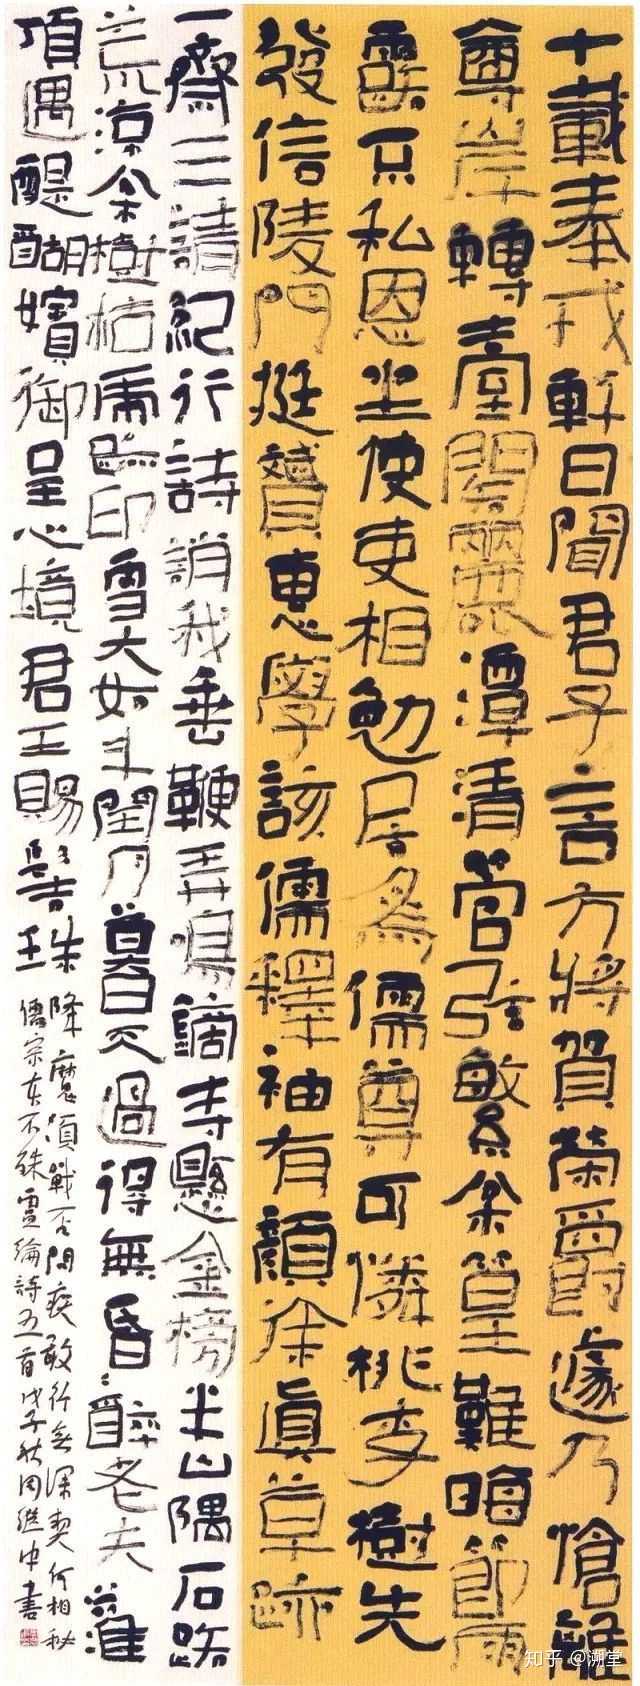 十載奉戎軒日聞君子言方將賀榮爵遽乃愴離
尊岸轉臺閣麗潭清管弦繁余篁難晦節雨
露不私恩坐使吏相勉居為儒尊可憐桃李樹先
發信陵門挺贊惠學該儒釋袖有顏徐真草跡
一齋三請紀行詩誚我垂鞭弄鳴鏑寺懸金榜半山隅石路
荒涼余樹枯虎跡印雪大如斗閏月暮天過得無昏醉老夫灌
頂遇醍醐嬪御呈心境君王賜髻珠
降魔須戰否問疾敢行無深契何相秘
儒宗本不殊靈綸詩五首戊子秋周繼中書
知乎 @溯堂